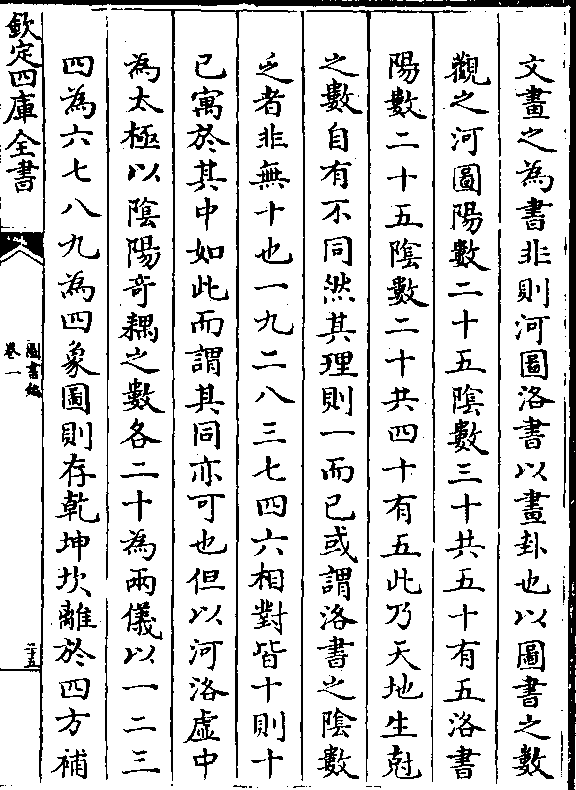 文畫之為書非則河圖洛書以畫卦也以圖書之數
觀之河圖陽數二十五陰數三十共五十有五洛書
陽數二十五陰數二十共四十有五此乃天地生尅
之數自有不同然其理則一而已或謂洛書之陰數
乏者非無十也一九二八三七四六相對皆十則十
已寓於其中如此而謂其同亦可也但以河洛虛中
為太極以陰陽奇耦之數各二十為兩儀以一二三
四為六七八九為四象圖則存乾坤坎離於四方補
欽定四庫全書
圖書編
卷一
二十五